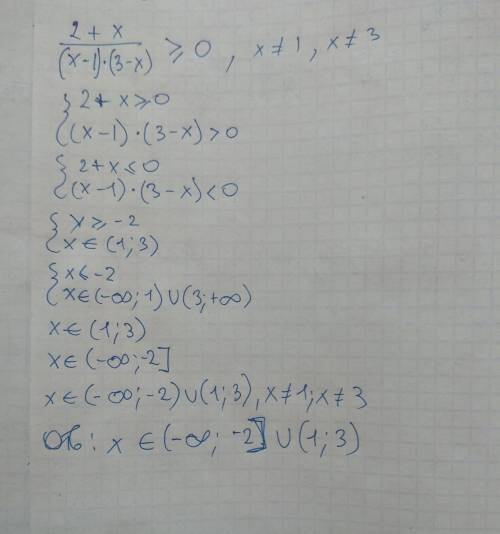 (2 + x)/((x-1)·(3-x)) ⩾ 0, x ≠ 1, x ≠ 3
{ 2 + x ⩾ 0
{ (x-1)·(3-x) > 0
{ 2 + x ⩽ 0
{ (x-1)·(3-x) < 0
{ x ⩾ -2
{ x ∈ (1; 3)
{ x ⩽ -2
{ x ∈ (-∞; 1) ∪ (3; +∞)
x ∈ (1; 3)
x ∈ (-∞; -2]
x ∈ (-∞; -2) ∪ (1; 3), x ≠ 1; x ≠ 3
Отв: x ∈ (-∞; -2] ∪ (1; 3)